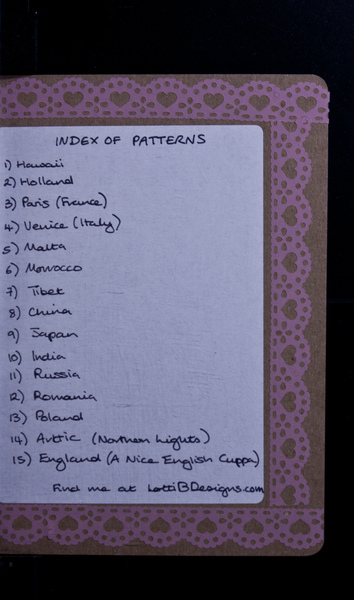 INDEX OF PATTERNS
1) Hawaii
2) Holland
3) Paris (France)
4) Venice (Italy)
5) Malta
6) Morrocco
7) Tibet
8) China
9) Japan
10) India
11) Russia
12) Romania
13) Poland
14) Arctic (Northern Lights)
15) England (A Nice English Cuppa)
Find me at LottiBDesigns.com